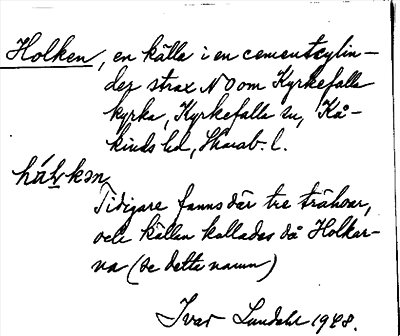 Holken, en källa i en cementcylin-
der strax NO om Kyrkefalla
kyrka, Kyrkefalla sn, Kå-
kinds hd, Skarab. l.
hål̬kən
Tidigare fanns där tre trähoar,
och källan kallades då Holkar-
na (se detta namn)
Ivar Lundahl 1948.